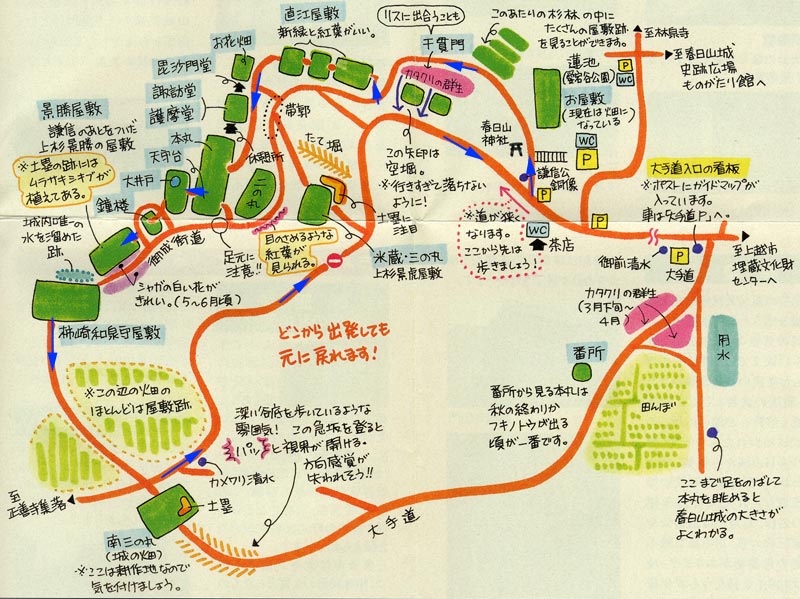 直江屋敷
新緑と紅葉がいい。
リスに出合うことも
千貫門
このあたりの杉林の中に
たくさんの屋敷跡
を見ることができます。
至林泉寺
至春日山城
史跡広場
ものがたり館へ
お花畑
毘沙門堂
諏訪堂
護摩堂
カタクリの群生
蓮池
(愛宕谷公園)
P
WC
お屋敷
(現在は畑に
なっている)
WC
P
景勝屋敷
謙信のあとをついだ
上杉景勝の屋敷
※土塁の跡には
ムラサキシキブが
植えてある。
本丸
天守台
大井戸
鐘楼
帯郭
休憩所
二の丸
たて堀
この矢印は
空堀。
※行きすぎて落ちない
ように!
春日山
神社
謙信公
銅像
P
大手道入口の看板
※ポストにガイドマップが
入っています。
車は大手道Pへ。
城内唯一
の水を溜めた
跡
御城街道
足元に
注意!!
目のさめるような
紅葉が
見られる。
土塁に
注目
米蔵・三の丸
上杉景虎屋敷
※道が狭く
なります。
ここから先は
歩きましょう!
WC
茶店
P
御前清水
P
大手道
至上越市
埋蔵文化財
センターへ
シャガの白い花が
きれい。(5〜6月頃)
柿崎和泉守屋敷
どこから出発しても
元に戻れます!
カタクリの群生
(3月下旬〜
4月)
用水
番所
番所から見る本丸は
秋の終わりか
フキノトウが出る
頃が一番です。
田んぼ
※この辺の畑の
ほとんどは屋敷跡
深い谷底を歩いているような
雰囲気! この急坂を登ると
パッと視界が開ける。
方向感覚が
失われそう!!
カメワリ清水
至
正善寺集落
土塁
大手道
南三の丸
(城の畑)
※ここは耕作地なので
気を付けましょう。
ここまで足をのばして
本丸を眺めると
春日山城の大きさが
よくわかる。